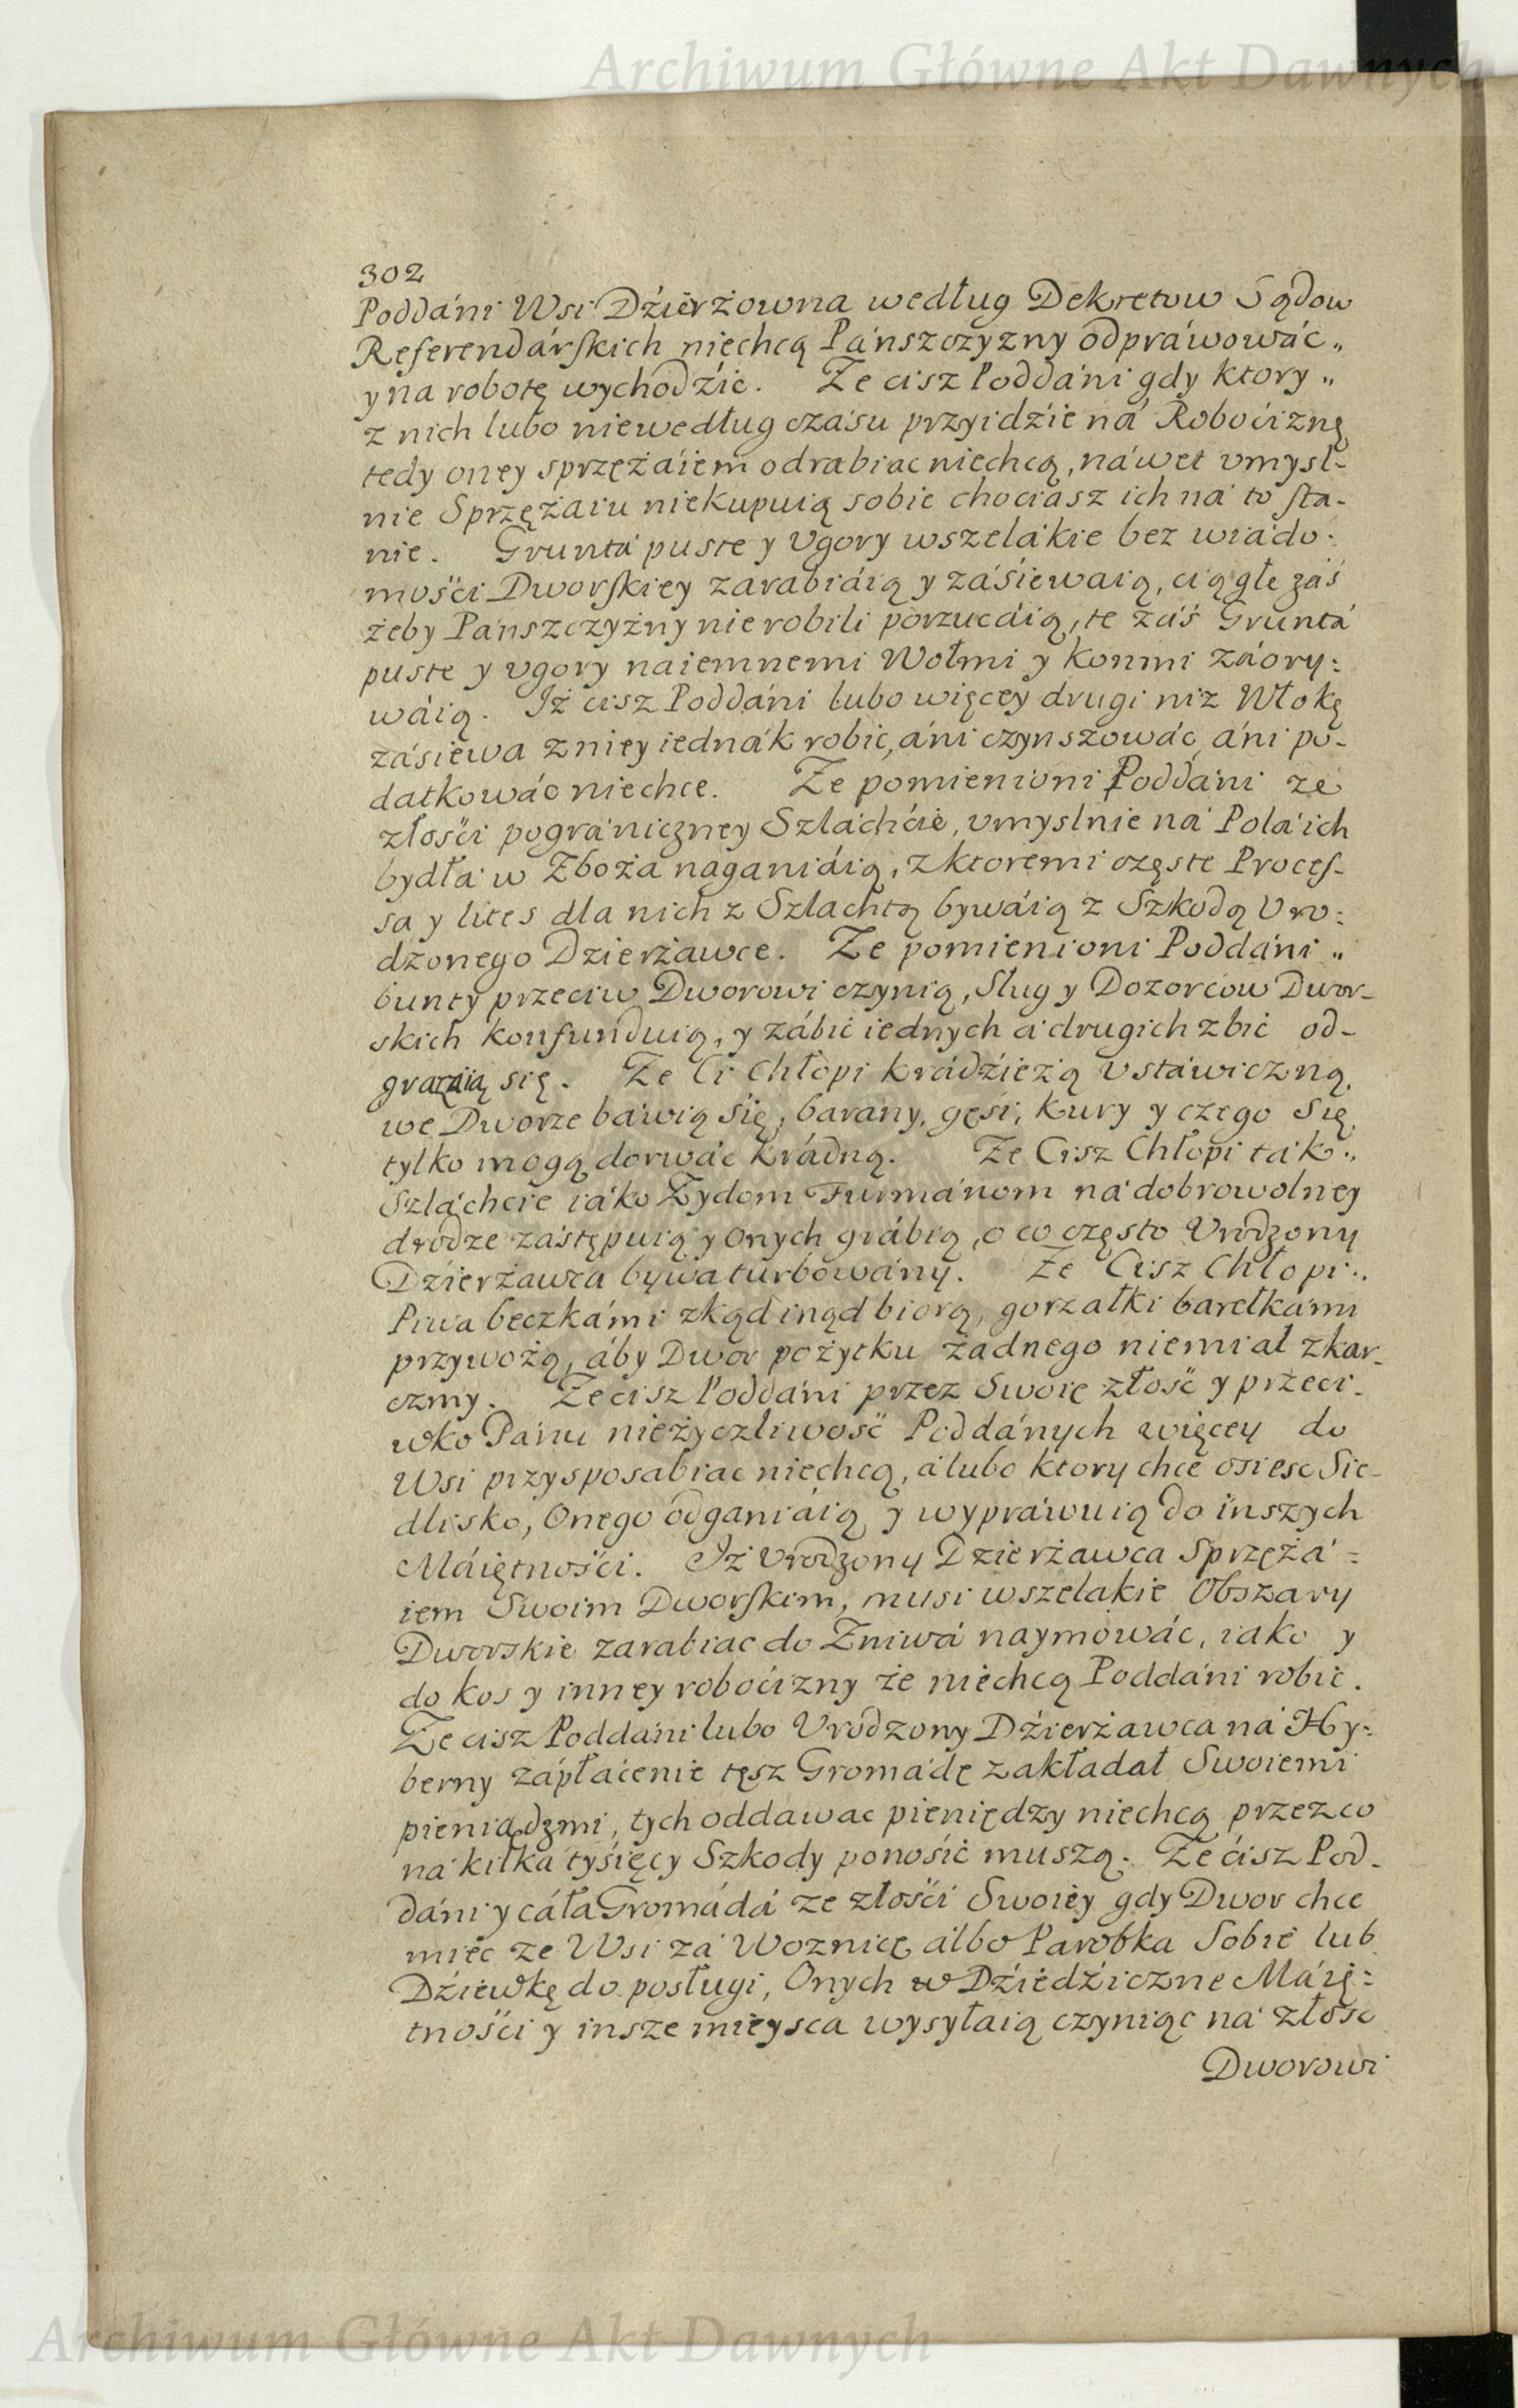 Archiwum Główne Akt Dawnych
302
Poddáni Wsi Dźierżowna według Dekretow Sądow
Referendárskich niechcą Pánszczyzny odpráwowáć„
y na robotę wychodźić. Że cisz Poddáni gdy ktory„
z nich lubo niewedług czásu przyidźie ná Roboćiznę
tedy oney sprzężáiem odrabiac niechcą, náwet vmysl-
nie Sprzężaiu niekupuią sobie chociasz ich ná to sta-
nie. Gruntá puste y Vgory wszelákie bez wiádo-
mośći Dworskiey zarabiáią y záśiewaią, ciągłe záś
żeby Pánszczyżny nie robili porzucáią, te záś Gruntá
puste y vgory naiemnemi Wołmi y konmi záory:
wáią. Iż cisz Poddáni lubo więcey drugi niz Włokę
zásiewa z niey iednák robić, áni czynszowáć áni po-
datkowáć niechce. Że pomienioni Poddáni ze
złośći pográniczney Szláchćie, vmyslnie ná Polá ich
bydłá w Zboża naganiáią, z ktoremi częste Proces-
sa y lites dla nich z Szlachtą bywáią z Szkodą Vro:
dzonego Dzierżawce. Że pomienioni Poddáni„
bunty przeciw Dworowi czynią, Sług y Dozorcow Dwor-
skich konfunduią, y zábić iednych á drugich zbić od-
grażaią się. Że Ci Chłopi krádźieżą Vstáwiczną
we Dworze báwią się, barany, gęśi, kury y czego Się
tylko mogą dorwáć krádną. Że Cisz Chłopi ták„
Szláchcie iáko Żydom Furmánom ná dobrowolney
drodze zástępuią y Onych grábią, o co często Vrodzony
Dźierżawca bywa turbowány. Że Cisz Chłopi„
Piwa beczkámi zkąd inąd biorą, gorzałki barełkámi
przywożą, áby Dwor pożytku żadnego niemiał z kar-
czmy. Że cisz Poddáni przez Swoię złość y przeci-
wko Pánu nieżyczliwość Poddánych więcey do
Wsi przysposabiac niechcą, á lubo ktory chce osiesc Sie-
dlisko, Onego odganiáią y wypráwuią do inszych
Máiętnośći. Iż Vrodzony Dzierżawca Sprzężá=
iem Swoim Dworskim, musi wszelakie Obszary
Dworskie zarabiac do Żniwá naymowáć, iako y
do kos y inney roboćizny że niechcą Poddáni robić.
Że cisz Poddáni lubo Vrodzony Dźierżawca ná Hy:
berny zápłácenie tęsz Gromádę zakładał Swoiemi
pieniądzmi, tych oddawac pieniędzy niechcą przez co
ná kilka tyśięcy Szkody ponośić muszą. Że ćisz Pod-
dáni y cáła Gromádá ze złośći Swoiey gdy Dwor chce
miec ze Wsi zá Woznicę álbo Parobka Sobie lub
Dźiewkę do posługi, Onych w Dźiedźiczne Máię:
tnośći y insze mieysca wysyłaią czyniąc ná złosc
Dworowi
Archiwum Główne Akt Dawnych